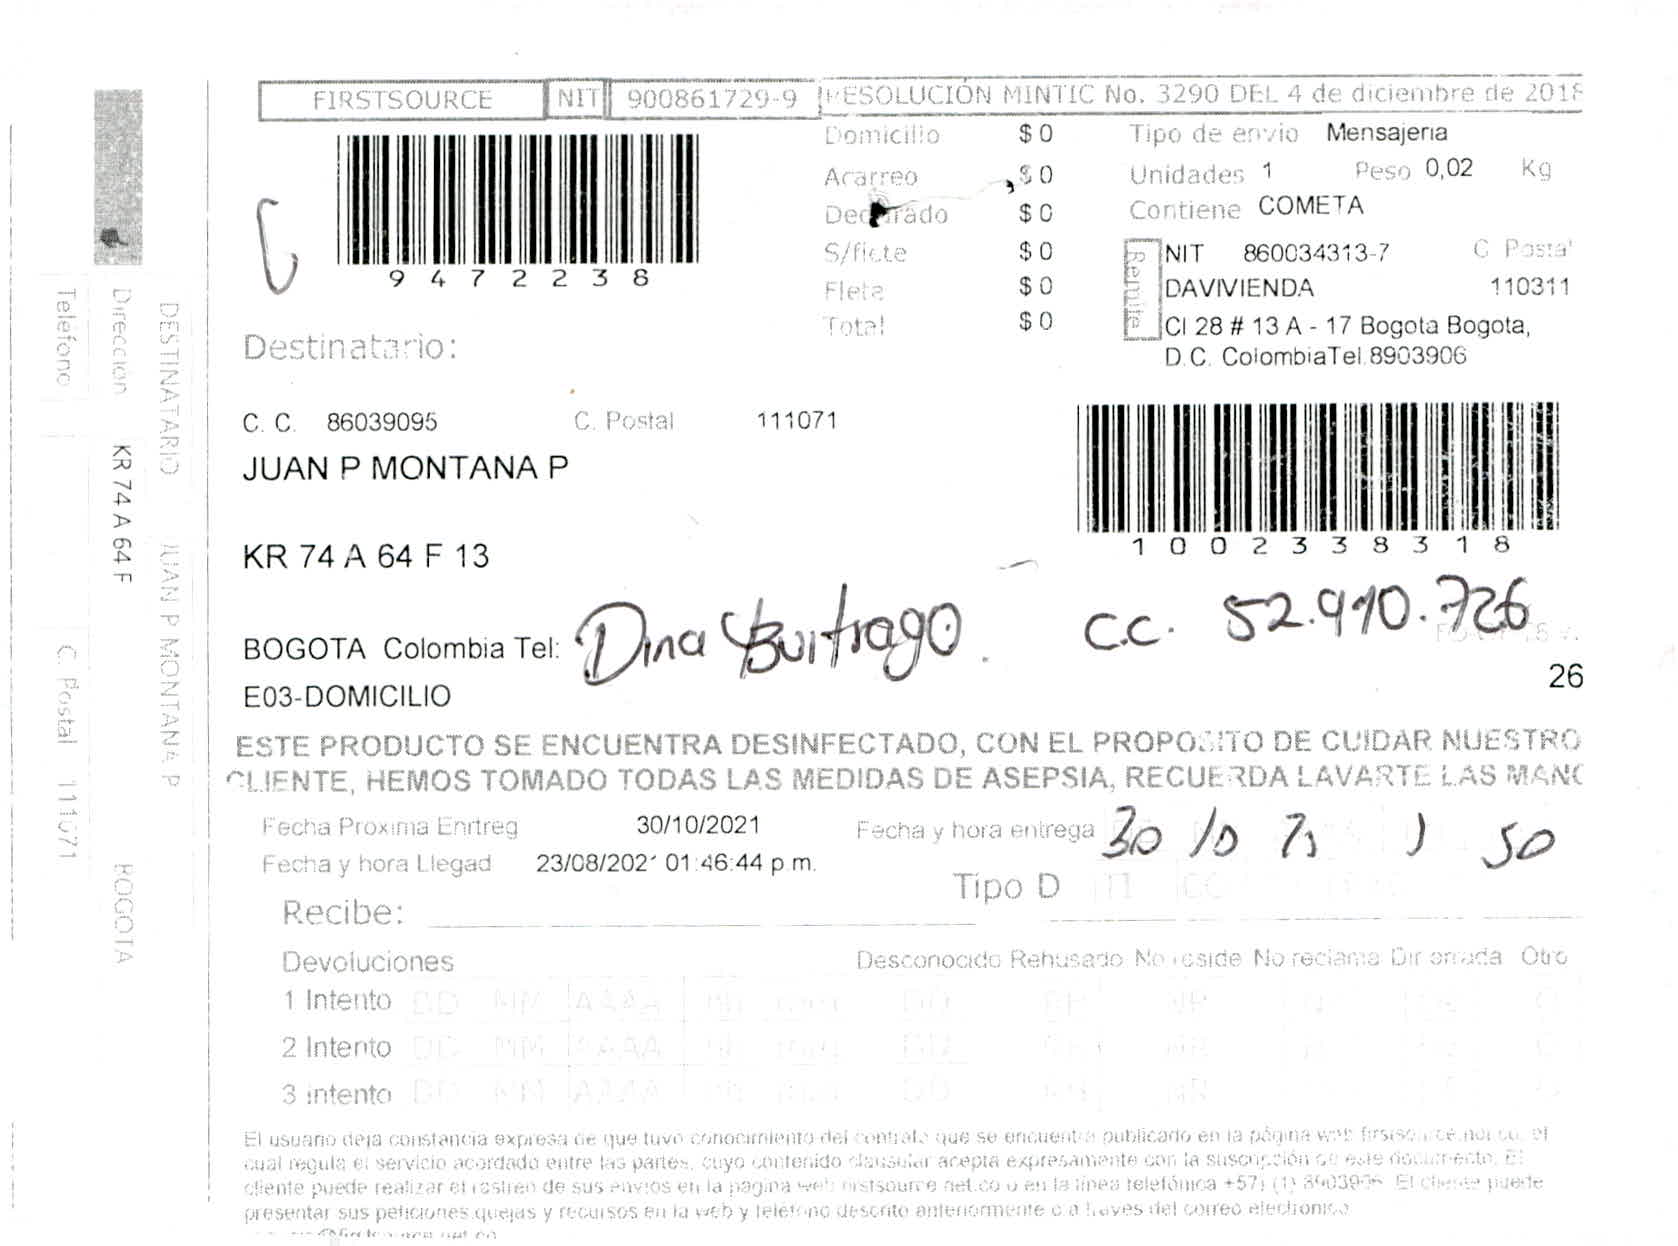 FIRSTSOURCE NIT 900861729-9 RESOLUCIÓN MINTIC No. 3290 DEL 4 de diciembre de 2018
9472238
Domicilio $0
Acarreo $0
Declarado $0
S/flete $0
Flete $0
Total $0
Tipo de envio Mensajeria
Unidades 1 Peso 0,02 Kg
Contiene COMETA
Remite
NIT 860034313-7 C Postal
DAVIVIENDA 110311
Cl 28 # 13 A - 17 Bogota Bogota,
D.C. ColombiaTel.8903906
Destinatario:
C. C. 86039095 C. Postal 111071
JUAN P MONTANA P
1002338318
KR 74 A 64 F 13
BOGOTA Colombia Tel: Dina Buitrago. C.C. 52.910.726
E03-DOMICILIO
26
ESTE PRODUCTO SE ENCUENTRA DESINFECTADO, CON EL PROPOSITO DE CUIDAR NUESTRO
CLIENTE, HEMOS TOMADO TODAS LAS MEDIDAS DE ASEPSIA, RECUERDA LAVARTE LAS MANO
Fecha Proxima Enrtreg 30/10/2021 Fecha y hora entrega 30 10 21 1 50
Fecha y hora Llegad 23/08/2021 01:46:44 p.m.
Tipo D
Recibe:
Devoluciones Desconocido Rehusado No reside No reclama Dir errada Otro
1 Intento DD MM AAAA
2 Intento DD MM AAAA
3 intento DD MM AAAA
El usuario deja constancia expresa de que tuvo conocimiento del contrato que se encuentra publicado en la página web firstsource.net.co, el
cual regula el servicio acordado entre las partes, cuyo contenido clausular acepta expresamente con la suscripción de este documento. El
cliente puede realizar el rastreo de sus envios en la pagina web firstsource.net.co o en la linea telefónica +57) (1) 8903906 El cliente puede
presentar sus peticiones quejas y recursos en la web y teléfono descrito anteriormente o a traves del correo electronico
DESTINATARIO JUAN P MONTANA P
Dirección KR 74 A 64 F BOGOTA
Teléfono C. Postal 111071